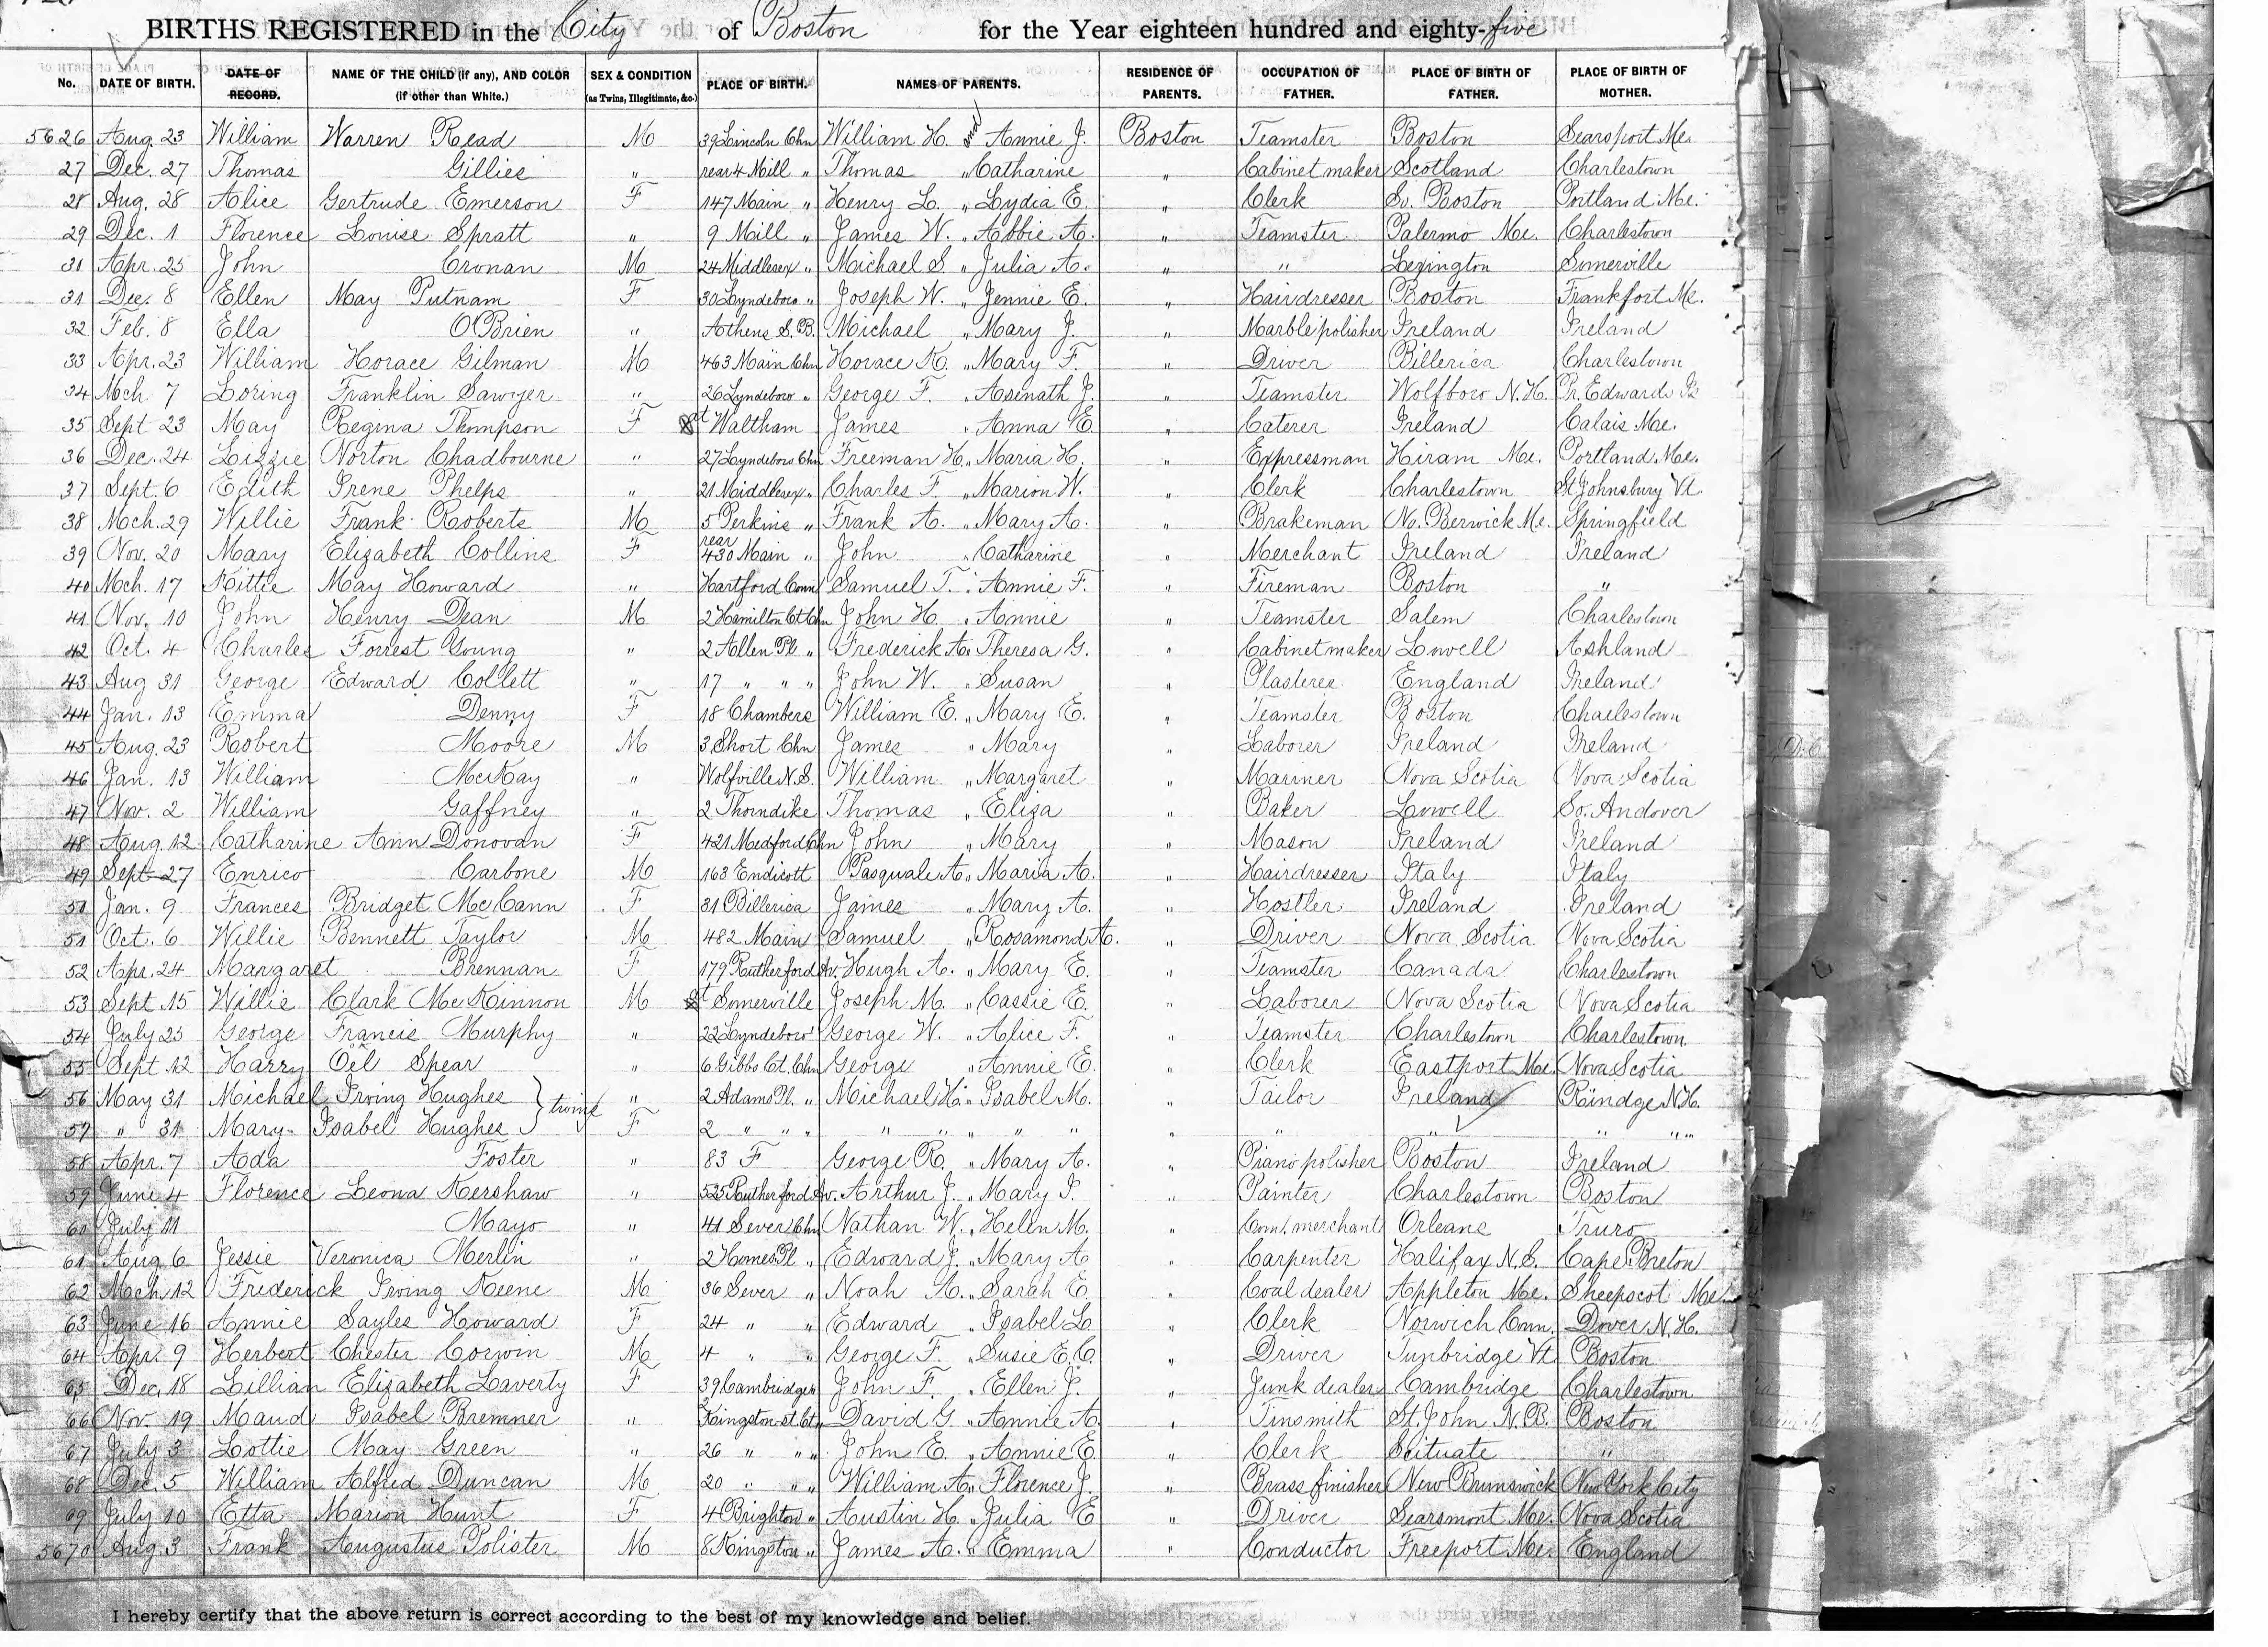 BIRTHS REGISTERED in the City of Boston for the Year eighteen hundred and eighty-five
No. DATE OF BIRTH. DATE OF RECORD. NAME OF THE CHILD (if any), AND COLOR (if other than White.) SEX & CONDITION (as Twins, Illegitimate, &c.) PLACE OF BIRTH. NAMES OF PARENTS. RESIDENCE OF PARENTS. OCCUPATION OF FATHER. PLACE OF BIRTH OF FATHER. PLACE OF BIRTH OF MOTHER.
5626 Aug. 23 William Warren Read M 39 Lincoln Chn William H. and Annie J. Boston Teamster Boston Searsport Me.
27 Dec. 27 Thomas Gillies " rear 4 Mill " Thomas " Catharine " Cabinet maker Scotland Charlestown
28 Aug. 28 Alice Gertrude Emerson F 147 Main " Henry L. " Lydia E. " Clerk So. Boston Portland Me.
29 Dec. 1 Florence Louise Spratt " 9 Mill " James W. " Abbie A. " Teamster Palermo Me. Charlestown
31 Apr. 25 John Cronan M 24 Middlesex " Michael S. " Julia A. " " Lexington Somerville
31 Dec. 8 Ellen May Putnam F 30 Lyndeboro " Joseph W. " Jennie E. " Hairdresser Boston Frankfort Me.
32 Feb. 8 Ella O'Brien " Athens S.B. Michael " Mary J. " Marble polisher Ireland Ireland
33 Apr. 23 William Horace Gilman M 463 Main Chn Horace K. " Mary F. " Driver Billerica Charlestown
34 Mch 7 Loring Franklin Sawyer " 26 Lyndeboro " George F. " Asenath J. " Teamster Wolfboro N.H. Pr. Edwards Is
35 Sept 23 May Regina Thompson F at Waltham James " Anna E. " Caterer Ireland Calais Me.
36 Dec. 24 Lizzie Norton Chadbourne " 27 Lyndeboro Chn Freeman H. " Maria H. " Expressman Hiram Me. Portland Me.
37 Sept. 6 Edith Irene Phelps " 21 Middlesex " Charles F. " Marion W. " Clerk Charlestown St Johnsbury Vt.
38 Mch. 29 Willie Frank Roberts M 5 Perkins " Frank A. " Mary A. " Brakeman No. Berwick Me. Springfield
39 Nov. 20 Mary Elizabeth Collins F rear 430 Main " John " Catharine " Merchant Ireland Ireland
40 Mch. 17 Kittie May Howard " Hartford Conn Samuel T. " Annie F. " Fireman Boston "
41 Nov. 10 John Henry Dean M 2 Hamilton Ct Chn John H. " Annie " Teamster Salem Charlestown
42 Oct. 4 Charles Forrest Young " 2 Allen Pl " Frederick A. " Theresa G. " Cabinet maker Lowell Ashland
43 Aug 31 George Edward Collett " 17 " " " John W. " Susan " Plasterer England Ireland
44 Jan. 13 Emma Denny F 18 Chambers William E. " Mary E. " Teamster Boston Charlestown
45 Aug. 23 Robert Moore M 3 Short Chn James " Mary " Laborer Ireland Ireland
46 Jan. 13 William McKay " Wolfville N.S. William " Margaret " Mariner Nova Scotia Nova Scotia
47 Nov. 2 William Gaffney " 2 Thorndike Thomas " Eliza " Baker Lowell So. Andover
48 Aug. 12 Catharine Ann Donovan F 421 Medford Chn John " Mary " Mason Ireland Ireland
49 Sept 27 Enrico Carbone M 163 Endicott Pasquale A. " Maria A. " Hairdresser Italy Italy
50 Jan. 9 Frances Bridget McCann F 31 Billerica James " Mary A. " Hostler Ireland Ireland
51 Oct. 6 Willie Bennett Taylor M 482 Main Samuel " Rosamond A. " Driver Nova Scotia Nova Scotia
52 Apr. 24 Margaret Brennan F 179 Rutherford Av. Hugh A. " Mary E. " Teamster Canada Charlestown
53 Sept. 15 Willie Clark McKinnon M at Somerville Joseph M. " Cassie E. " Laborer Nova Scotia Nova Scotia
54 July 25 George Francis Murphy " 22 Lyndeboro George W. " Alice F. " Teamster Charlestown Charlestown
55 Sept. 12 Harry Oel Spear " 6 Gibbs Ct. Chn George " Annie E. " Clerk Eastport Me. Nova Scotia
56 May 31 Michael Irving Hughes } twins " 2 Adams Pl. " Michael H. " Isabel M. " Tailor Ireland Rindge N.H.
57 " 31 Mary Isabel Hughes F 2 " " " " " " " " " " " "
58 Apr. 7 Ada Foster " 83 F George R. " Mary A. " Piano polisher Boston Ireland
59 June 4 Florence Leona Kershaw " 525 Rutherford Av. Arthur J. " Mary I. " Painter Charlestown Boston
60 July 11 Mayo " 41 Sever Chn Nathan W. " Helen M. " Com. merchant Orleans Truro
61 Aug. 6 Jessie Veronica Merlin " 2 Homes Pl " Edward J. " Mary A " Carpenter Halifax N.S. Cape Breton
62 Mch. 12 Frederick Irving Keene M 36 Sever " Noah A. " Sarah E. " Coal dealer Appleton Me. Sheepscot Me.
63 June 16 Annie Sayles Howard F 24 " " Edward " Isabel L. " Clerk Norwich Conn. Dover N.H.
64 Apr. 9 Herbert Chester Corwin M 4 " " George F. " Susie E.C. " Driver Tunbridge Vt. Boston
65 Dec. 18 Lillian Elizabeth Laverty F 39 Cambridge " John F. " Ellen J. " Junk dealer Cambridge Charlestown
66 Nov. 19 Maud Isabel Bremner " 2 Kingston St. Ct. " David G. " Annie A. " Tinsmith St. John N.B. Boston
67 July 3 Lottie May Green " 26 " " " John E. " Annie E. " Clerk Scituate "
68 Dec. 5 William Alfred Duncan M 20 " " " William A. " Florence J. " Brass finisher New Brunswick New York City
69 July 10 Etta Marion Hunt F 4 Brighton " Austin H. " Julia E " Driver Searsmont Me. Nova Scotia
5670 Aug. 3 Frank Augustus Polister M 8 Kingston " James A. " Emma " Conductor Freeport Me. England
I hereby certify that the above return is correct according to the best of my knowledge and belief.